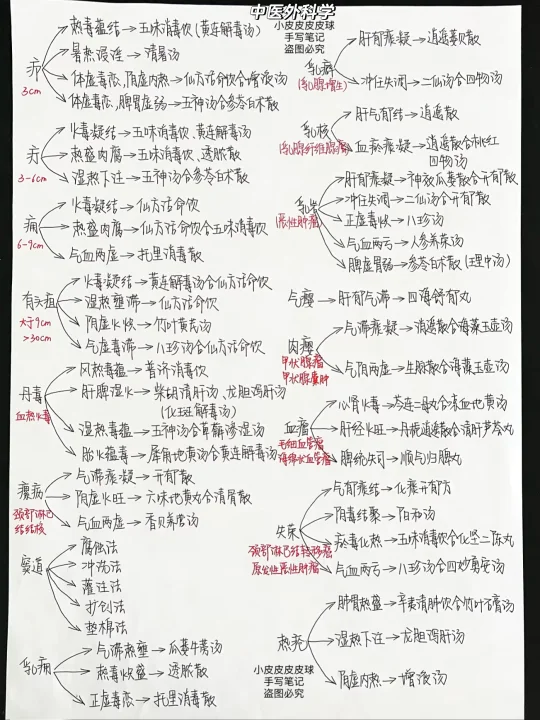 中医外科学
疖
3cm
热毒蕴结→五味消毒饮(黄连解毒汤)
暑热浸淫→清暑汤
体虚毒恋,阴虚内热→仙方活命饮合增液汤
体虚毒恋,脾胃虚弱→五神汤合参苓白术散
疔
3-6cm
火毒凝结→五味消毒饮、黄连解毒汤
热盛肉腐→五味消毒饮、透脓散
湿热下注→五神汤合参苓白术散
痈
6-9cm
火毒凝结→仙方活命饮
热盛肉腐→仙方活命饮合五味消毒饮
气血两虚→托里消毒散
有头疽
大于9cm
>30cm
火毒凝结→黄连解毒汤合仙方活命饮
湿热壅滞→仙方活命饮
阴虚火炽→竹叶黄芪汤
气虚毒滞→八珍汤合仙方活命饮
丹毒
血热火毒
风热毒蕴→普济消毒饮
肝脾湿火→柴胡清肝汤、龙胆泻肝汤
(化斑解毒汤)
湿热毒蕴→五神汤合萆薢渗湿汤
胎火蕴毒→犀角地黄汤合黄连解毒汤
瘰疬
颈部淋巴
结结核
气滞痰凝→开郁散
阴虚火旺→六味地黄丸合清骨散
气血两虚→香贝养荣汤
窦道
腐蚀法
冲洗法
灌注法
扩创法
垫棉法
乳痈
气滞热壅→瓜蒌牛蒡汤
热毒炽盛→透脓散
正虚毒恋→托里消毒散
小皮皮皮皮球
手写笔记
盗图必究
乳癖
(乳腺增生)
肝郁痰凝→逍遥蒌贝散
冲任失调→二仙汤合四物汤
乳核
(乳腺纤维腺瘤)
肝气郁结→逍遥散
血瘀痰凝→逍遥散合桃红
四物汤
乳岩
(恶性肿瘤)
肝郁痰凝→神效瓜蒌散合开郁散
冲任失调→二仙汤合开郁散
正虚毒炽→八珍汤
气血两亏→人参养荣汤
脾虚胃弱→参苓白术散(理中汤)
气瘿→肝郁气滞→四海舒郁丸
肉瘿
甲状腺瘤
甲状腺囊肿
气滞痰凝→逍遥散合海藻玉壶汤
气阴两虚→生脉散合海藻玉壶汤
血瘤
毛细血管瘤
海绵状血管瘤
心肾火毒→芩连二母丸合凉血地黄汤
肝经火旺→丹栀逍遥散合清肝芦荟丸
脾统失司→顺气归脾丸
失荣
颈部淋巴结转移癌
原发性恶性肿瘤
气郁痰结→化痰开郁方
阴毒结聚→阳和汤
瘀毒化热→五味消毒饮合化坚二陈丸
气血两亏→八珍汤合四妙勇安汤
热疮
肺胃热盛→辛夷清肺饮合竹叶石膏汤
湿热下注→龙胆泻肝汤
阴虚内热→增液汤
小皮皮皮皮球
手写笔记
盗图必究